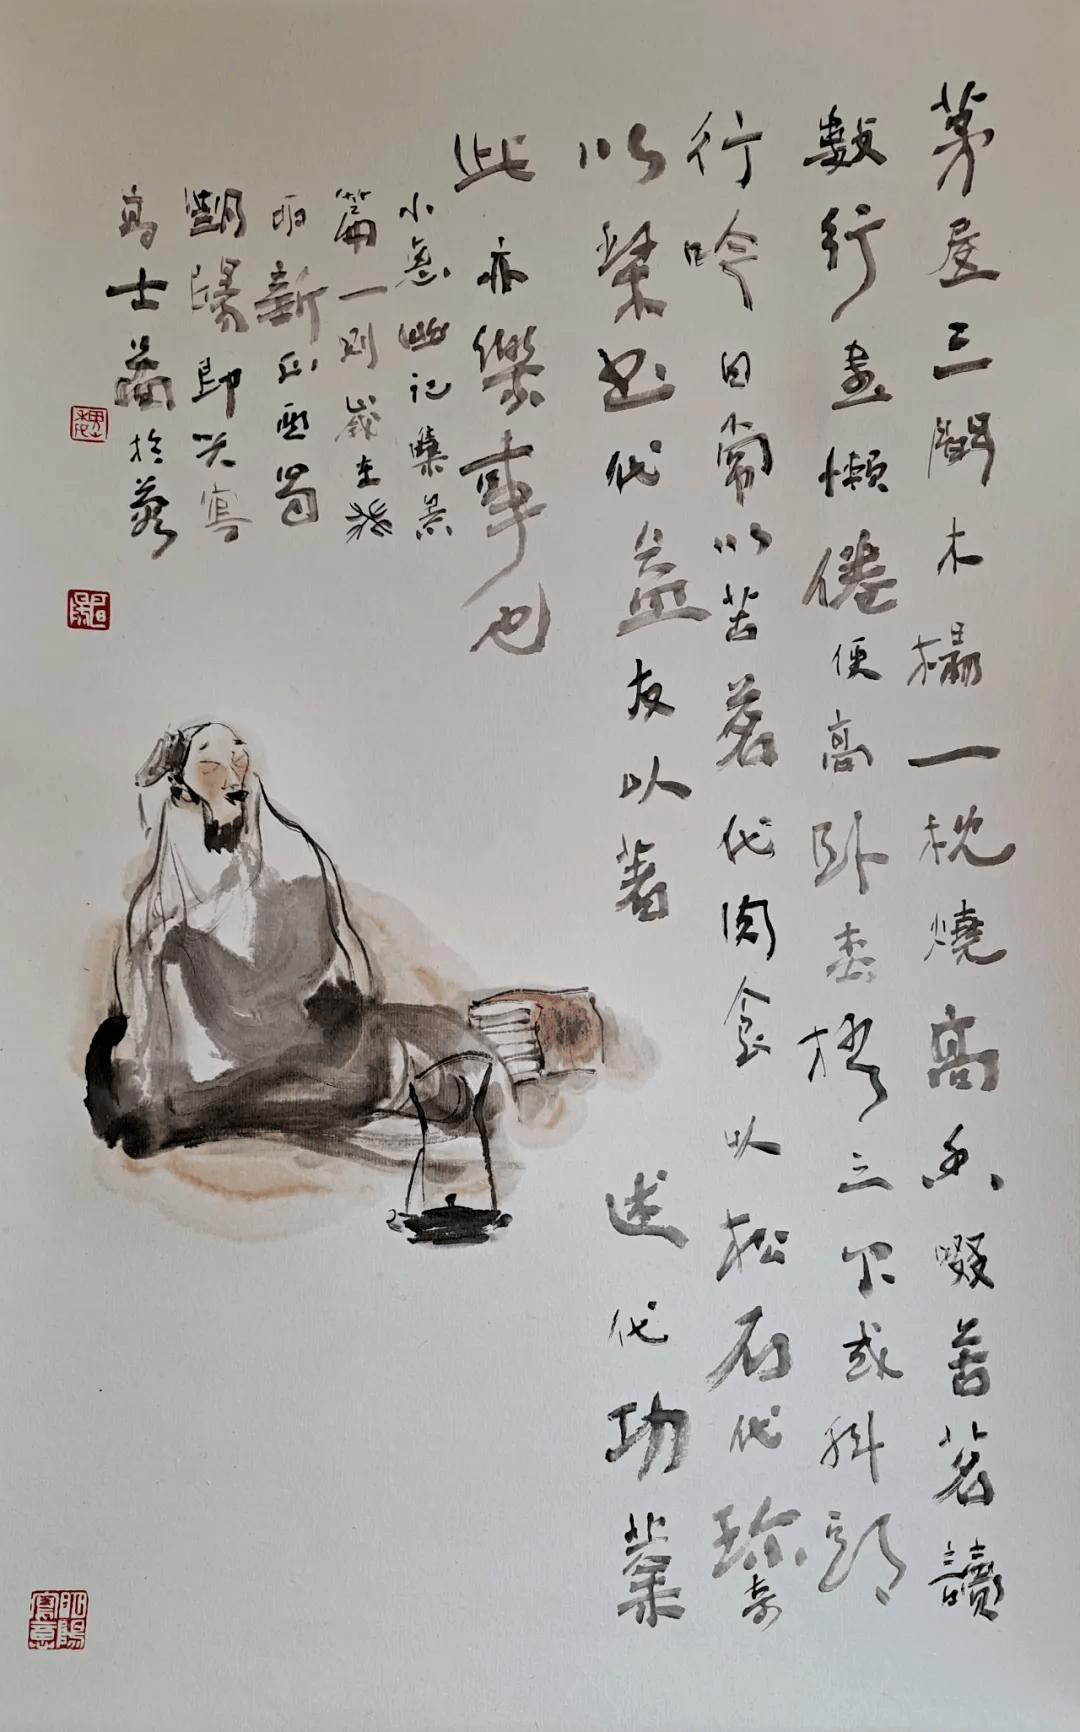 茅屋三間木榻一枕燒高香啜苦茗讀
數行書懶倦便高卧松梧之下或科頭
行吟日常以苦茗代肉食以松石代珍奇
以琴書代益友以著述代功業
此亦樂事也
小窓幽記集景
篇一則歲在癸
卯新正西蜀
陽 寫
高士圖於蓉
昭陽寫意